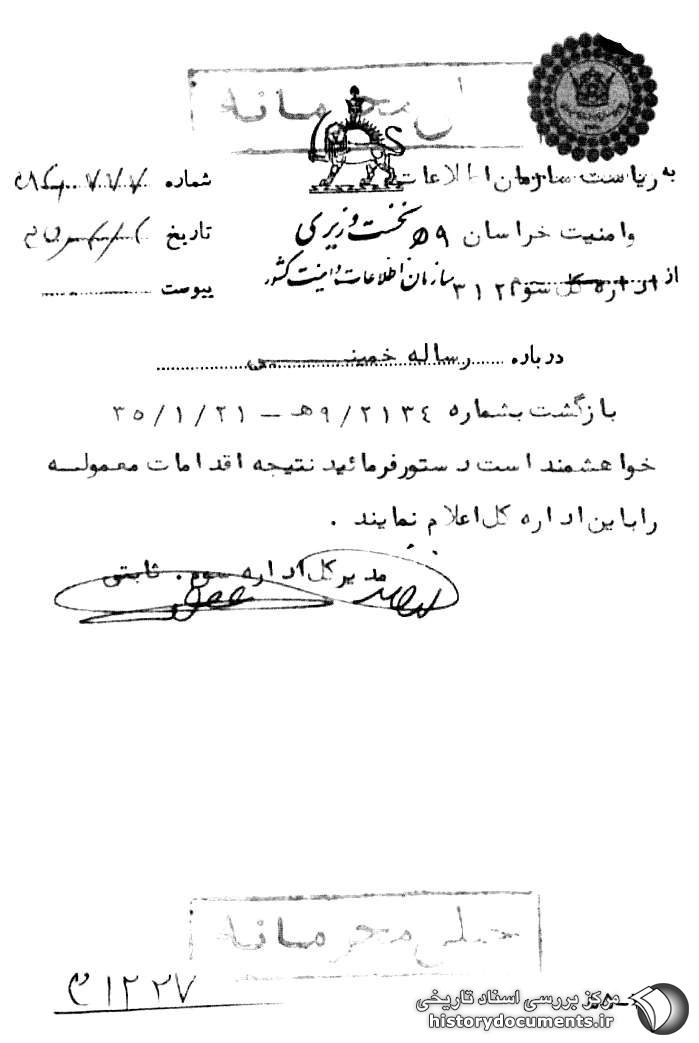 خیلی محرمانه
به ریاست سازمان اطلاعات
شماره
نخست وزیری
و امنیت خراسان ه‍ ۹
تاریخ
سازمان اطلاعات و امنیت کشور
از اداره کل سوم ۳۱۲
پیوست
درباره رساله خمینی
بازگشت بشماره ۹/۲۱۳٤هـ – ۳۵/۱/۲۱
خواهشمند است دستور فرمائید نتیجه اقدامات معموله
را باین اداره کل اعلام نمایند .
مدیر کل اداره سوم . ثابتی
خیلی محرمانه
مرکز بررسی اسناد تاریخی
historydocuments.ir